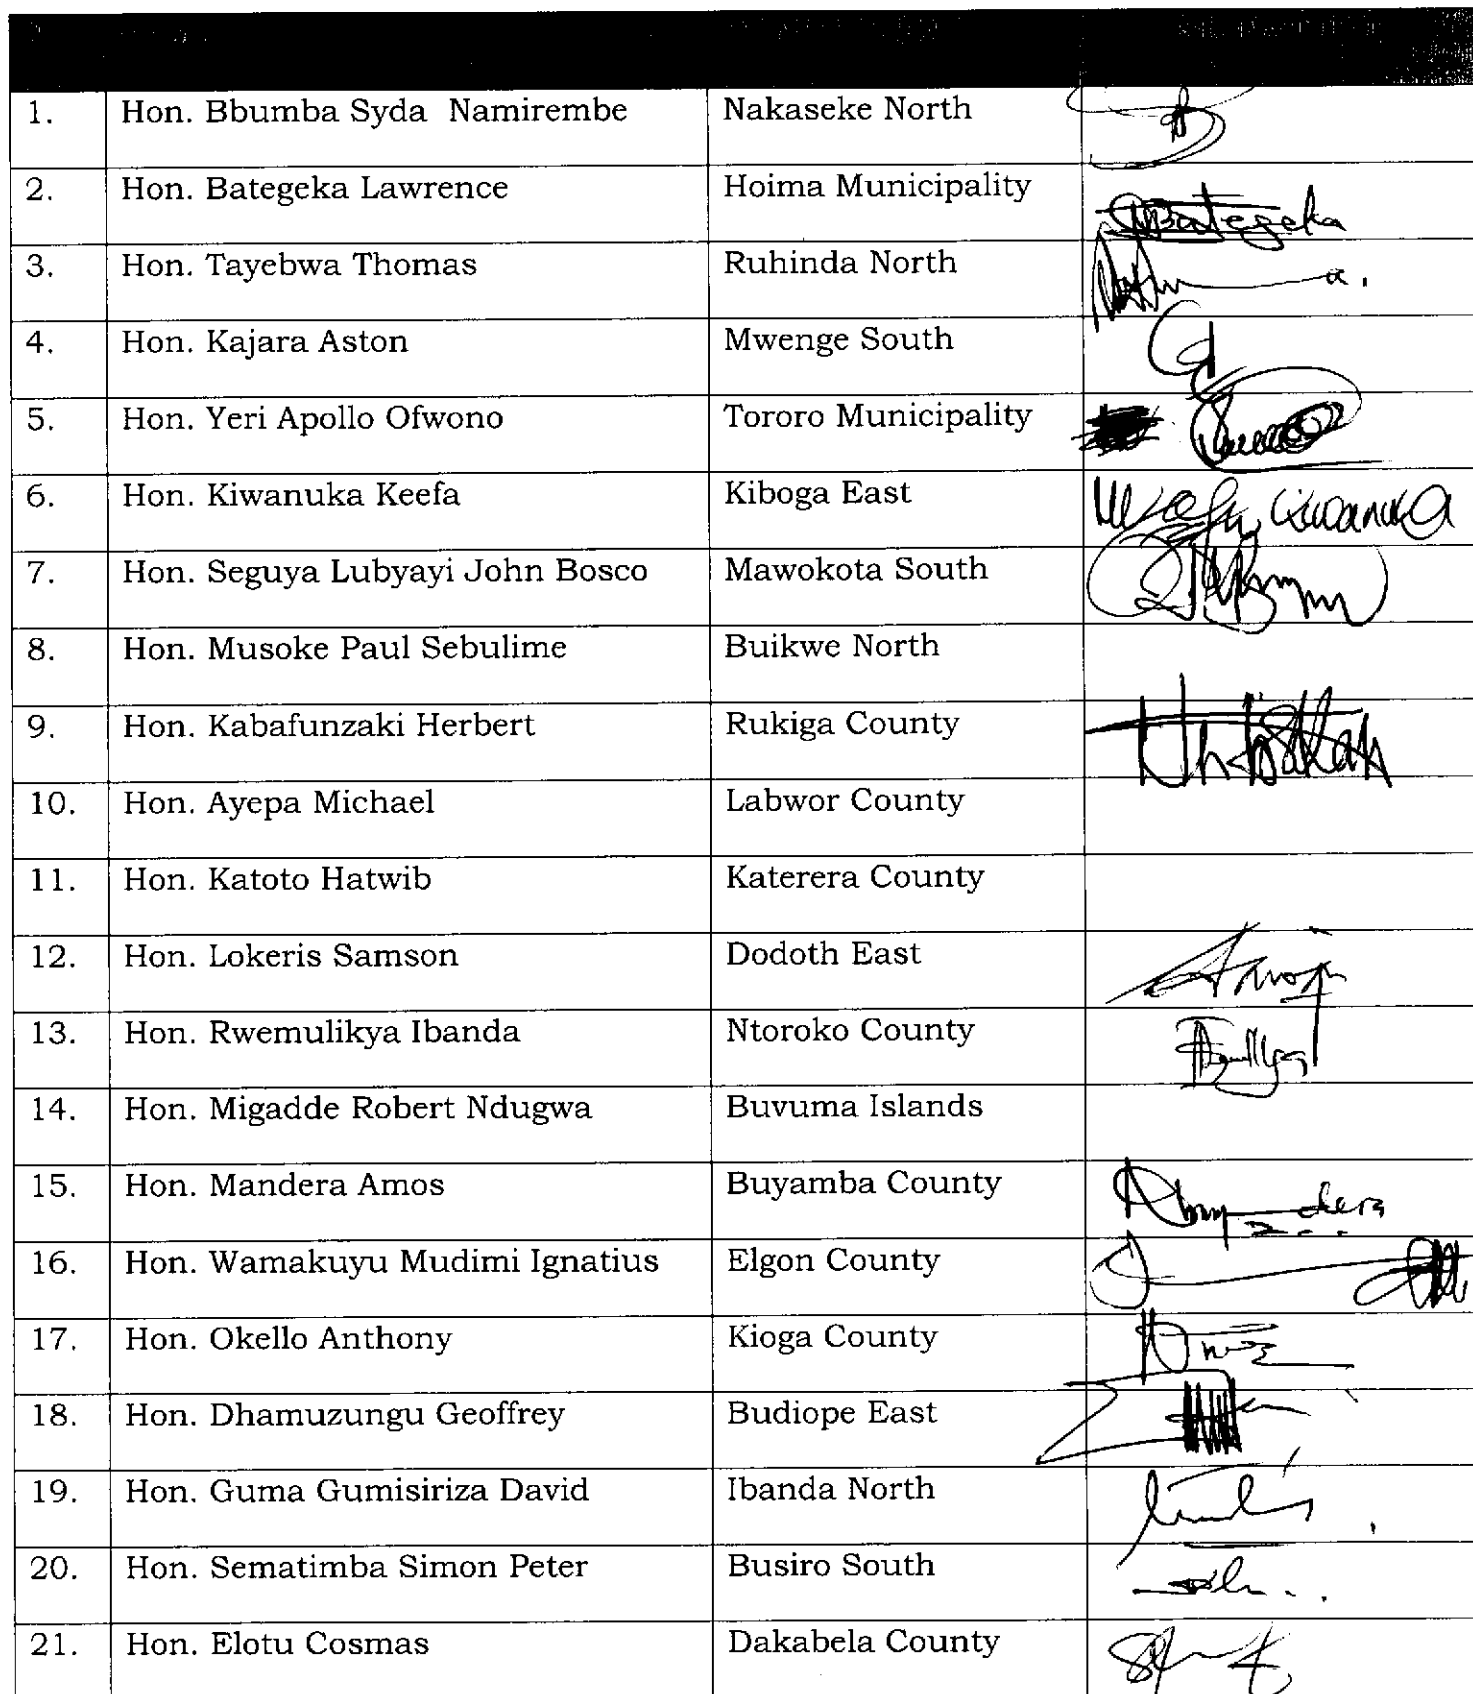 1. Hon. Bbumba Syda Namirembe Nakaseke North
2. Hon. Bategeka Lawrence Hoima Municipality Bategeka
3. Hon. Tayebwa Thomas Ruhinda North
4. Hon. Kajara Aston Mwenge South
5. Hon. Yeri Apollo Ofwono Tororo Municipality
6. Hon. Kiwanuka Keefa Kiboga East Kiwanuka
7. Hon. Seguya Lubyayi John Bosco Mawokota South
8. Hon. Musoke Paul Sebulime Buikwe North
9. Hon. Kabafunzaki Herbert Rukiga County
10. Hon. Ayepa Michael Labwor County
11. Hon. Katoto Hatwib Katerera County
12. Hon. Lokeris Samson Dodoth East
13. Hon. Rwemulikya Ibanda Ntoroko County
14. Hon. Migadde Robert Ndugwa Buvuma Islands
15. Hon. Mandera Amos Buyamba County
16. Hon. Wamakuyu Mudimi Ignatius Elgon County
17. Hon. Okello Anthony Kioga County
18. Hon. Dhamuzungu Geoffrey Budiope East
19. Hon. Guma Gumisiriza David Ibanda North
20. Hon. Sematimba Simon Peter Busiro South
21. Hon. Elotu Cosmas Dakabela County